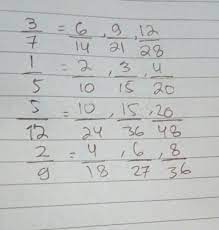 3/7 = 6/14, 9/21, 12/28
1/5 = 2/10, 3/15, 4/20
5/12 = 10/24, 15/36, 20/48
2/9 = 4/18, 6/27, 8/36